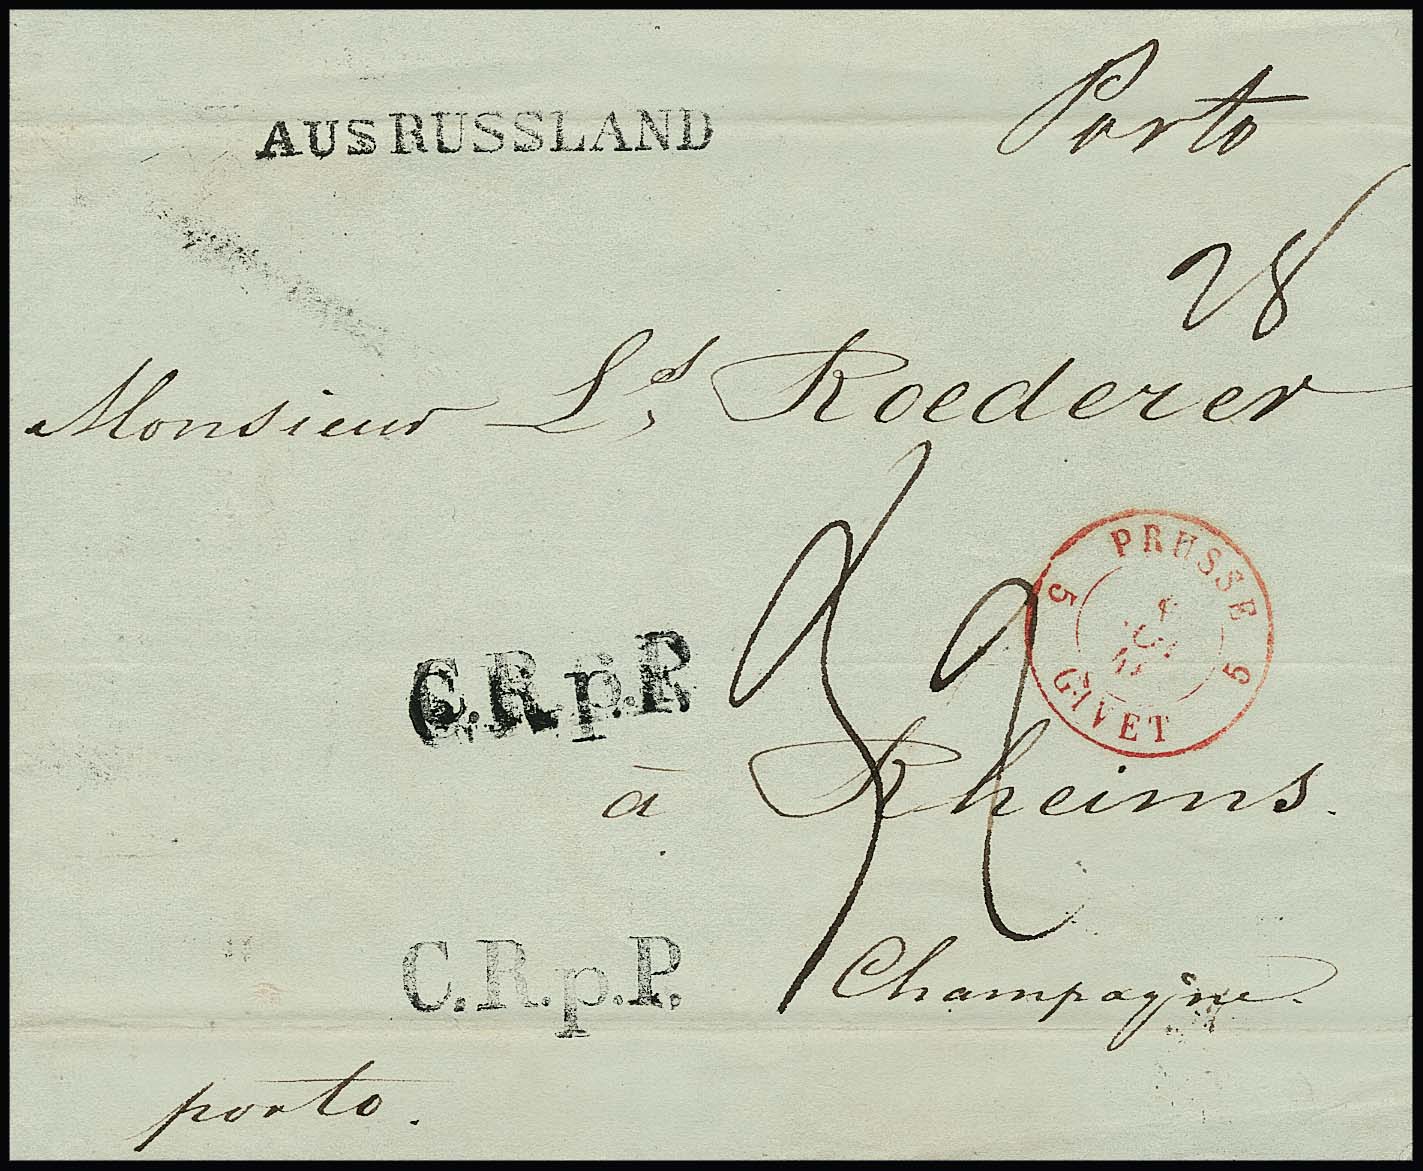 AUS RUSSLAND
Porto
28
Monsieur Ls. Roederer
PRUSSE
5 5
GIVET
C.R.p.P.
à Rheims.
C.R.p.P.
Champagne.
porto.